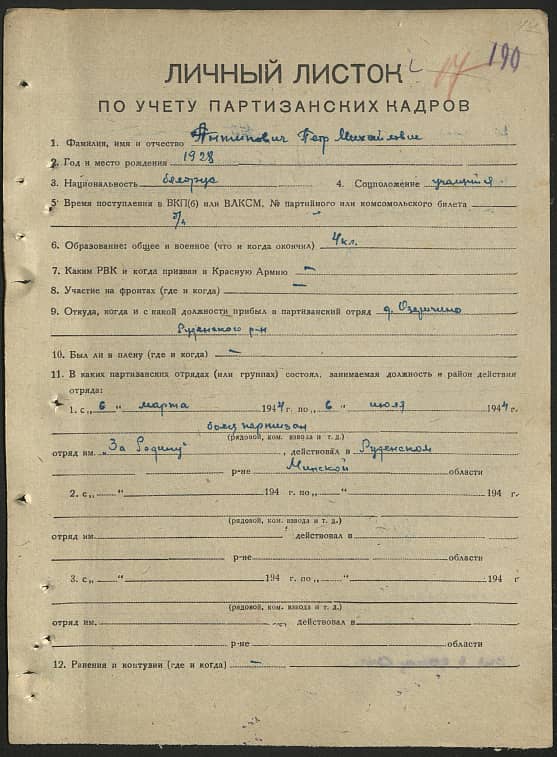 17 190
ЛИЧНЫЙ ЛИСТОК
ПО УЧЕТУ ПАРТИЗАНСКИХ КАДРОВ
1. Фамилия, имя и отчество Антипович Петр Михайлович
2. Год и место рождения 1928
3. Национальность белорус 4. Соцположение учащийся
5. Время поступления в ВКП(б) или ВЛКСМ, № партийного или комсомольского билета
б/п
6. Образование: общее и военное (что и когда окончил) 4 кл.
7. Каким РВК и когда призван в Красную Армию —
8. Участие на фронтах (где и когда) —
9. Откуда, когда и с какой должности прибыл в партизанский отряд д. Озеричино
Руденского р-н
10. Был ли в плену (где и когда) —
11. В каких партизанских отрядах (или группах) состоял, занимаемая должность и район действия
отряда:
1. с „6 “ марта 1944 г. по „6 “ июля 1944 г.
боец партизан
(рядовой, ком. взвода и т. д.)
отряд им. „За Родину“, действовал в Руденском
р-не Минской области
2. с „ — “ 194 г. по „ — “ 194 г.
(рядовой, ком. взвода и т. д.)
отряд им. действовал в
р-не области
3. с „ — “ 194 г. по „ — “ 194 г.
(рядовой, ком. взвода и т. д.)
отряд им. действовал в
р-не области
12. Ранения и контузии (где и когда) —